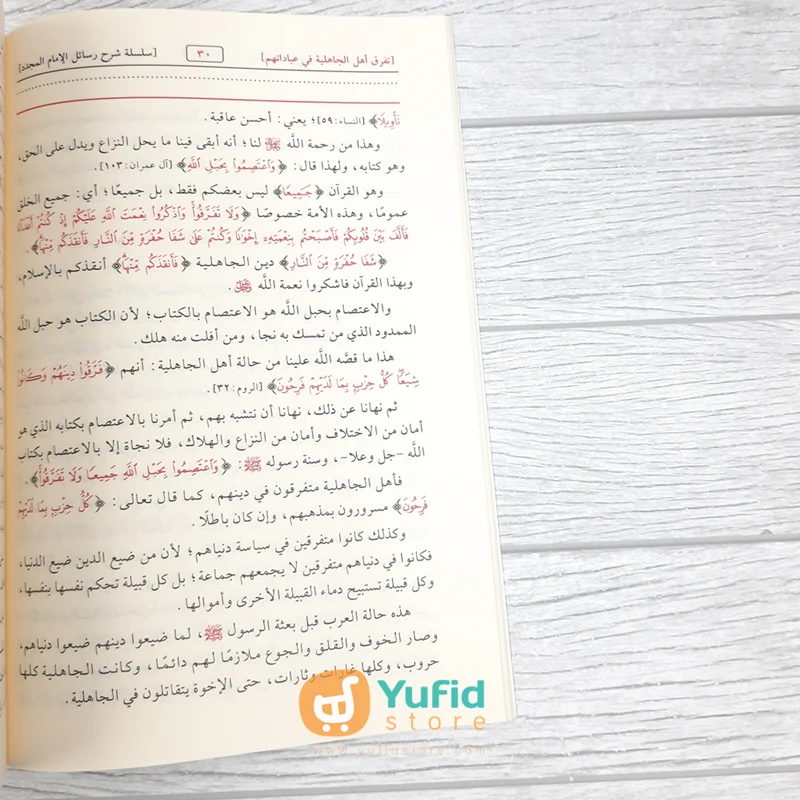 [تفرق أهل الجاهلية في عباداتهم] ٣٠ [سلسلة شرح رسائل الإمام المجدد]
تَأْوِيلًا﴾ [النساء: ٥٩]؛ يعني: أحسن عاقبة.
وهذا من رحمة اللَّه ﷻ لنا؛ أنه أبقى فينا ما يحل النزاع ويدل على الحق،
وهو كتابه، ولهذا قال: ﴿وَاعْتَصِمُوا بِحَبْلِ اللَّهِ﴾ [آل عمران: ١٠٣].
وهو القرآن ﴿جَمِيعًا﴾ ليس بعضكم فقط، بل جميعًا؛ أي: جميع الخلق
عمومًا، وهذه الأمة خصوصًا ﴿وَلَا تَفَرَّقُوا وَاذْكُرُوا نِعْمَتَ اللَّهِ عَلَيْكُمْ إِذْ كُنتُمْ أَعْدَاءً
فَأَلَّفَ بَيْنَ قُلُوبِكُمْ فَأَصْبَحْتُم بِنِعْمَتِهِ إِخْوَانًا وَكُنتُمْ عَلَىٰ شَفَا حُفْرَةٍ مِّنَ النَّارِ فَأَنقَذَكُم مِّنْهَا﴾.
﴿شَفَا حُفْرَةٍ مِّنَ النَّارِ﴾ دين الجاهلية ﴿فَأَنقَذَكُم مِّنْهَا﴾ أنقذكم بالإسلام،
وبهذا القرآن فاشكروا نعمة اللَّه ﷻ.
والاعتصام بحبل اللَّه هو الاعتصام بالكتاب؛ لأن الكتاب هو حبل اللَّه
الممدود الذي من تمسك به نجا، ومن أفلت منه هلك.
هذا ما قصَّه اللَّه علينا من حالة أهل الجاهلية: أنهم ﴿فَرَّقُوا دِينَهُمْ وَكَانُوا
شِيَعًا كُلُّ حِزْبٍ بِمَا لَدَيْهِمْ فَرِحُونَ﴾ [الروم: ٣٢].
ثم نهانا عن ذلك، نهانا أن نتشبه بهم، ثم أمرنا بالاعتصام بكتابه الذي هو
أمان من الاختلاف وأمان من النزاع والهلاك، فلا نجاة إلا بالاعتصام بكتاب
اللَّه -جل وعلا-، وسنة رسوله ﷺ: ﴿وَاعْتَصِمُوا بِحَبْلِ اللَّهِ جَمِيعًا وَلَا تَفَرَّقُوا﴾.
فأهل الجاهلية متفرقون في دينهم، كما قال تعالى: ﴿كُلُّ حِزْبٍ بِمَا لَدَيْهِمْ
فَرِحُونَ﴾ مسرورون بمذهبهم، وإن كان باطلًا.
وكذلك كانوا متفرقين في سياسة دنياهم؛ لأن من ضيع الدين ضيع الدنيا،
فكانوا في دنياهم متفرقين لا يجمعهم جماعة؛ بل كل قبيلة تحكم نفسها بنفسها،
وكل قبيلة تستبيح دماء القبيلة الأخرى وأموالها.
هذه حالة العرب قبل بعثة الرسول ﷺ، لما ضيعوا دينهم ضيعوا دنياهم،
وصار الخوف والقلق والجوع ملازمًا لهم دائمًا، وكانت الجاهلية كلها
حروب، وكلها غارات وثارات، حتى الإخوة يتقاتلون في الجاهلية.
Yufid
store
www.yufidstore.com